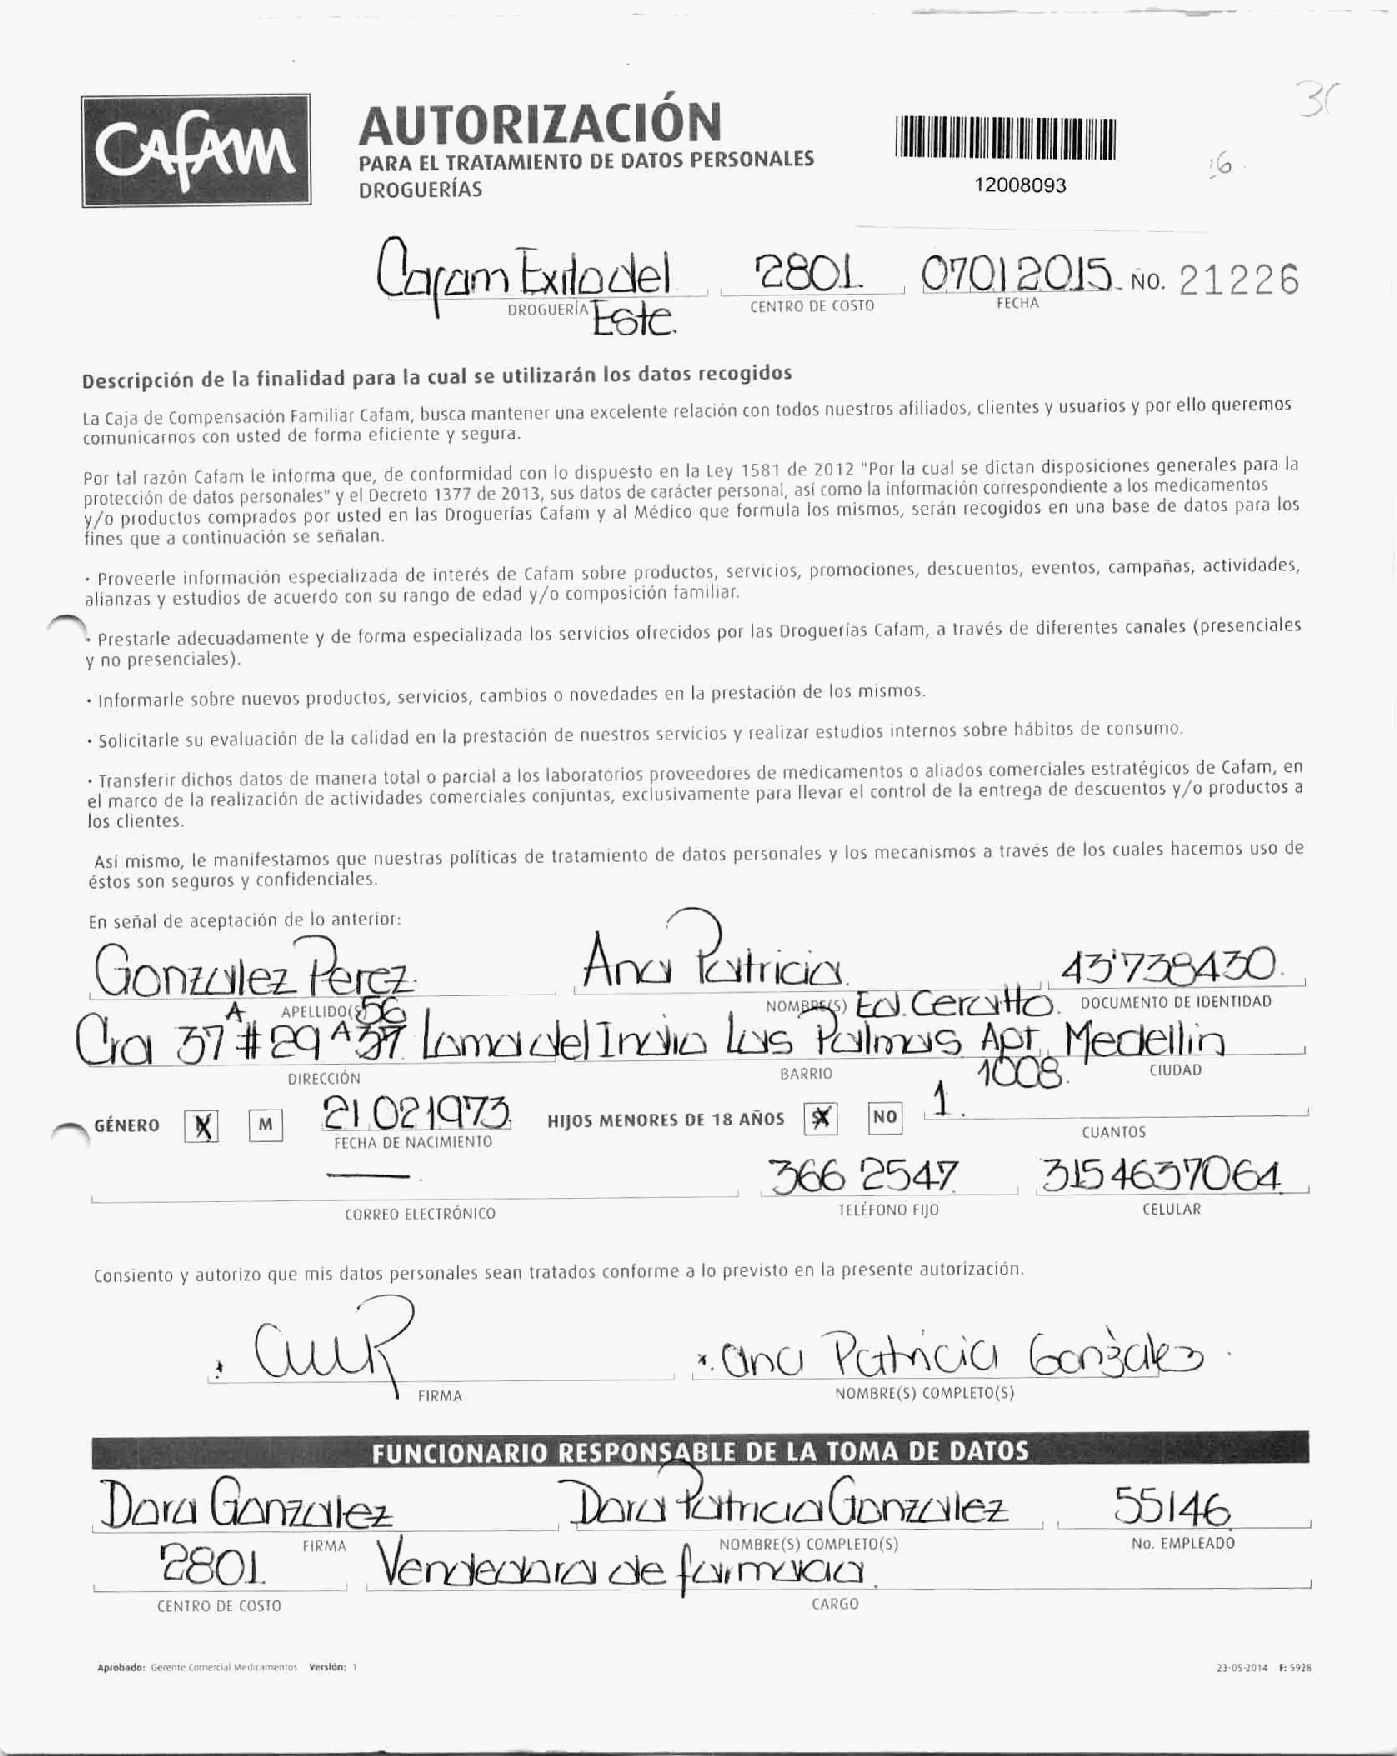 CAFAM
AUTORIZACIÓN
PARA EL TRATAMIENTO DE DATOS PERSONALES
DROGUERÍAS
12008093
Cafam Exito del Este. 2801 07012015 No. 21226
DROGUERÍA CENTRO DE COSTO FECHA
Descripción de la finalidad para la cual se utilizarán los datos recogidos
La Caja de Compensación Familiar Cafam, busca mantener una excelente relación con todos nuestros afiliados, clientes y usuarios y por ello queremos
comunicarnos con usted de forma eficiente y segura.
Por tal razón Cafam le informa que, de conformidad con lo dispuesto en la Ley 1581 de 2012 "Por la cual se dictan disposiciones generales para la
protección de datos personales" y el Decreto 1377 de 2013, sus datos de carácter personal, así como la información correspondiente a los medicamentos
y/o productos comprados por usted en las Droguerías Cafam y al Médico que formula los mismos, serán recogidos en una base de datos para los
fines que a continuación se señalan.
· Proveerle información especializada de interés de Cafam sobre productos, servicios, promociones, descuentos, eventos, campañas, actividades,
alianzas y estudios de acuerdo con su rango de edad y/o composición familiar.
· Prestarle adecuadamente y de forma especializada los servicios ofrecidos por las Droguerías Cafam, a través de diferentes canales (presenciales
y no presenciales).
· Informarle sobre nuevos productos, servicios, cambios o novedades en la prestación de los mismos.
· Solicitarle su evaluación de la calidad en la prestación de nuestros servicios y realizar estudios internos sobre hábitos de consumo.
· Transferir dichos datos de manera total o parcial a los laboratorios proveedores de medicamentos o aliados comerciales estratégicos de Cafam, en
el marco de la realización de actividades comerciales conjuntas, exclusivamente para llevar el control de la entrega de descuentos y/o productos a
los clientes.
Así mismo, le manifestamos que nuestras políticas de tratamiento de datos personales y los mecanismos a través de los cuales hacemos uso de
éstos son seguros y confidenciales.
En señal de aceptación de lo anterior:
Gonzalez Perez Ana Patricia 43'738430
APELLIDO(S) NOMBRE(S) DOCUMENTO DE IDENTIDAD
Cra 37 A # 29 A 56 Loma del Indio Las Palmas Apt 1008. Medellin
DIRECCIÓN BARRIO CIUDAD
GÉNERO X M 21 02 1973 HIJOS MENORES DE 18 AÑOS X NO 1.
FECHA DE NACIMIENTO CUANTOS
366 2547 3154637064
CORREO ELECTRÓNICO TELÉFONO FIJO CELULAR
Consiento y autorizo que mis datos personales sean tratados conforme a lo previsto en la presente autorización.
Ana Patricia Gonzalez
FIRMA NOMBRE(S) COMPLETO(S)
FUNCIONARIO RESPONSABLE DE LA TOMA DE DATOS
Dora Gonzalez Dora Patricia Gonzalez 55146
FIRMA NOMBRE(S) COMPLETO(S) No. EMPLEADO
2801 Vendedora de farmacia
CENTRO DE COSTO CARGO
Aprobado: Gerente Comercial Medicamentos Versión: 1 23-05-2014 F: 5928